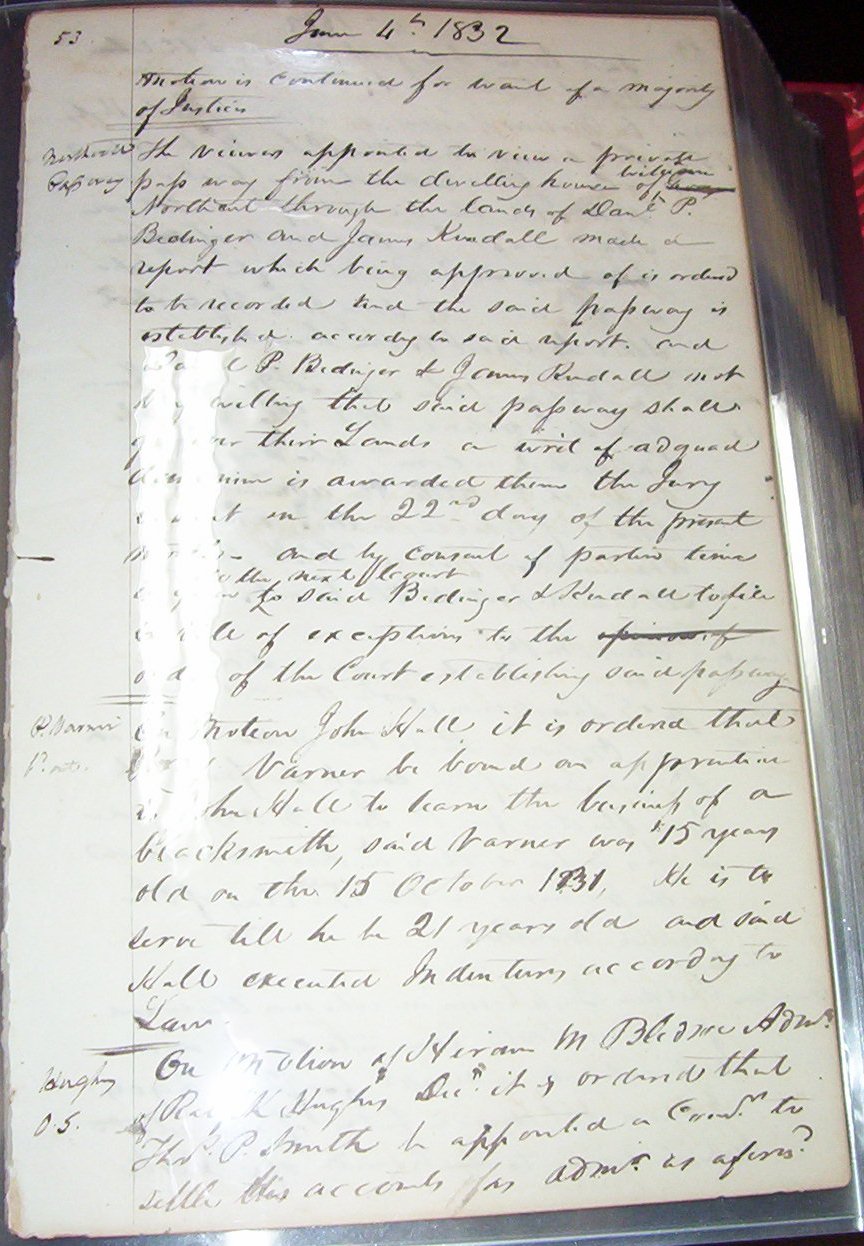 53
June 4th 1832
Motion is continued for want of a majority
of Justices
Northcutt
Passway
The viewers appointed to view a private
pass way from the dwelling house of
Northcut through the lands of Danl P.
Bedinger and James Kendall made a
report which being approved of is ordered
to be recorded and the said passway is
established according to said report. and
P. Bedinger & James Kendall not
willing that said passway shall
over their Lands a writ of adquad
is awarded them the Jury
on the 22nd day of the present
and by consent of parties time
to the next Court
to said Bedinger & Kendall to file
of exceptions to the opinion of
of the Court establishing said passway
P. Varner
On Motion John Hall it is ordered that
Varner be bound an apprentice
John Hall to learn the business of a
blacksmith, said Varner was 15 years
old on the 15 October 1831, He is to
serve till he be 21 years old and said
Hall executed Indentures according to
Law.
Hughs
O.S.
On Motion of Hiram M Bledsoe Admr
of K Hughs Decd it is ordered that
Thos P. Smith be appointed a Comr to
settle his accounts as admr as aforesd